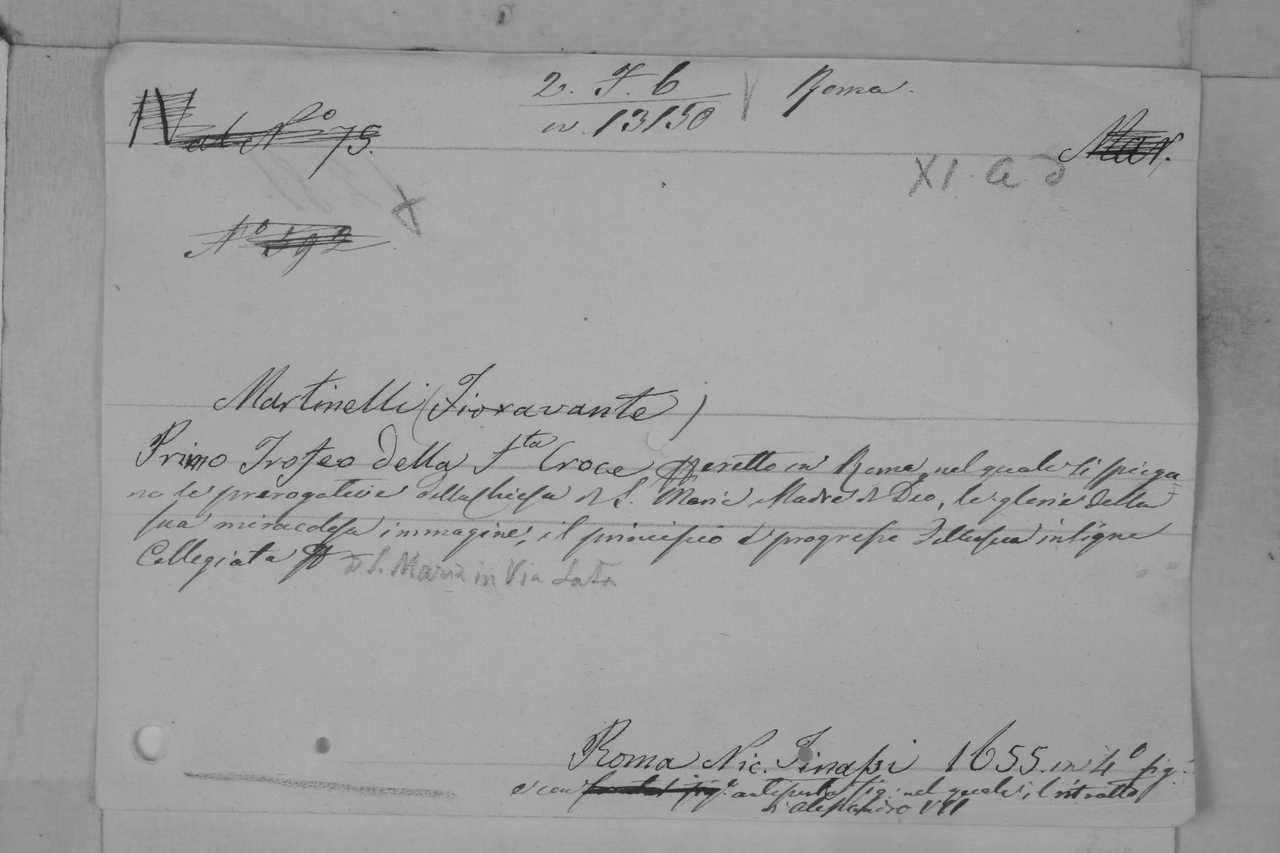 2. F. 6 Roma.
n. 13150
N at N.º 75. Mar.
XI. a d
Nº 392
Martinelli (Fioravante)
Primo Trofeo della Sta Croce eretto in Roma nel quale si spiega
no le prerogative della chiesa di S. Maria Madre di Dio, le glorie della
sua miracolosa immagine, il principio e progressi della sua insigne
Collegiata di S. Maria in Via Lata
Roma Nic. Tinassi 1655. in 4º fig.
e con antiporta fig. nel quale il ritratto
di Alessandro VII